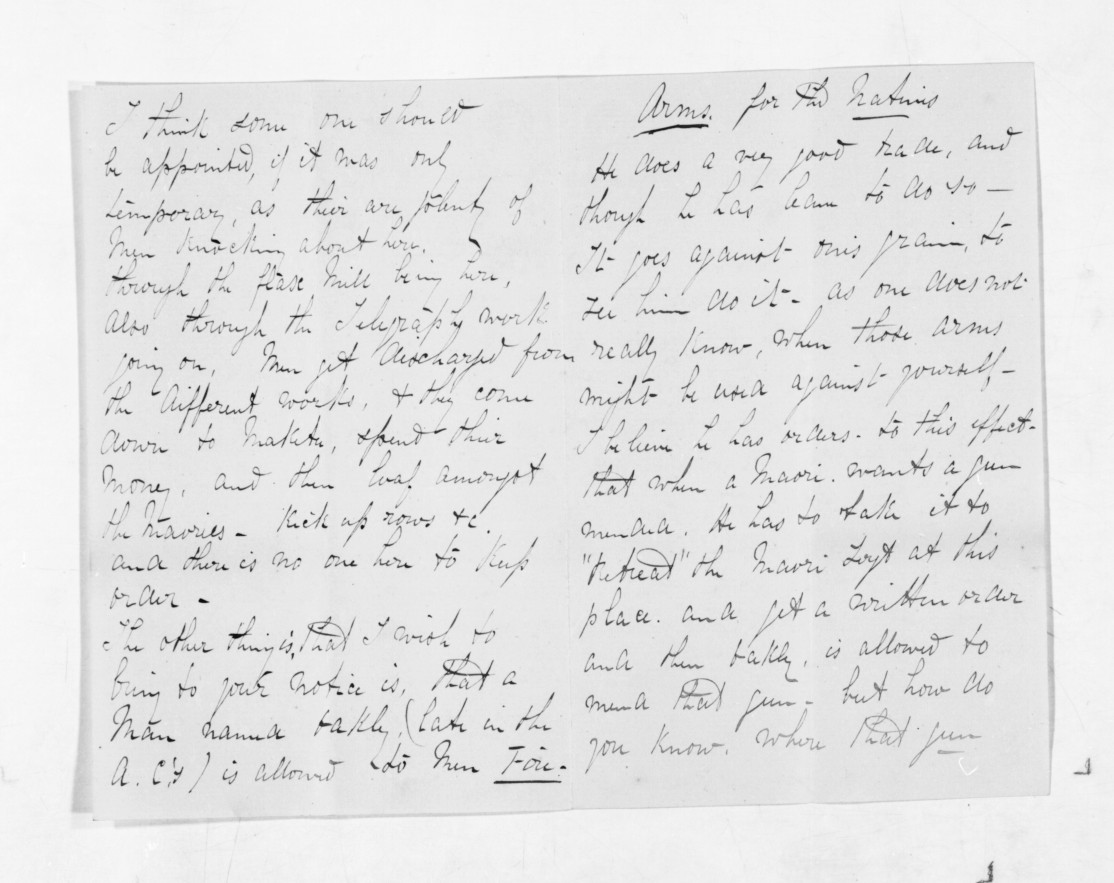 I think some one should
be appointed, if it was only
temporary, as their are plenty of
Men Knocking about here.
through the flax Mill being here,
also through the Telegraph work
going on, Men get discharged from
the different works, & they come
down to Maketu, spend their
Money, and then loaf amongst
the Maories - Kick up rows &c.
and there is no one here to Keep
order -
The other thing is, that I wish to
bring to your notice is, that a
Man named Oakly, (late in the
A. C's) is allowed to Men Fire-
Arms. for the Natives
He does a very good trade, and
though he has leave to do so -
It goes against ones grain, to
see him do it - as one does not
really Know, when those arms
might be used against yourself, -
I believe he has orders - to this effect -
that when a Maori. wants a gun
mended. He has to take it to
"Retreat" the Maori Sergt at this
place. and get a written order
and then Oakly, is allowed to
mend that gun - but how do
you Know. where that gun